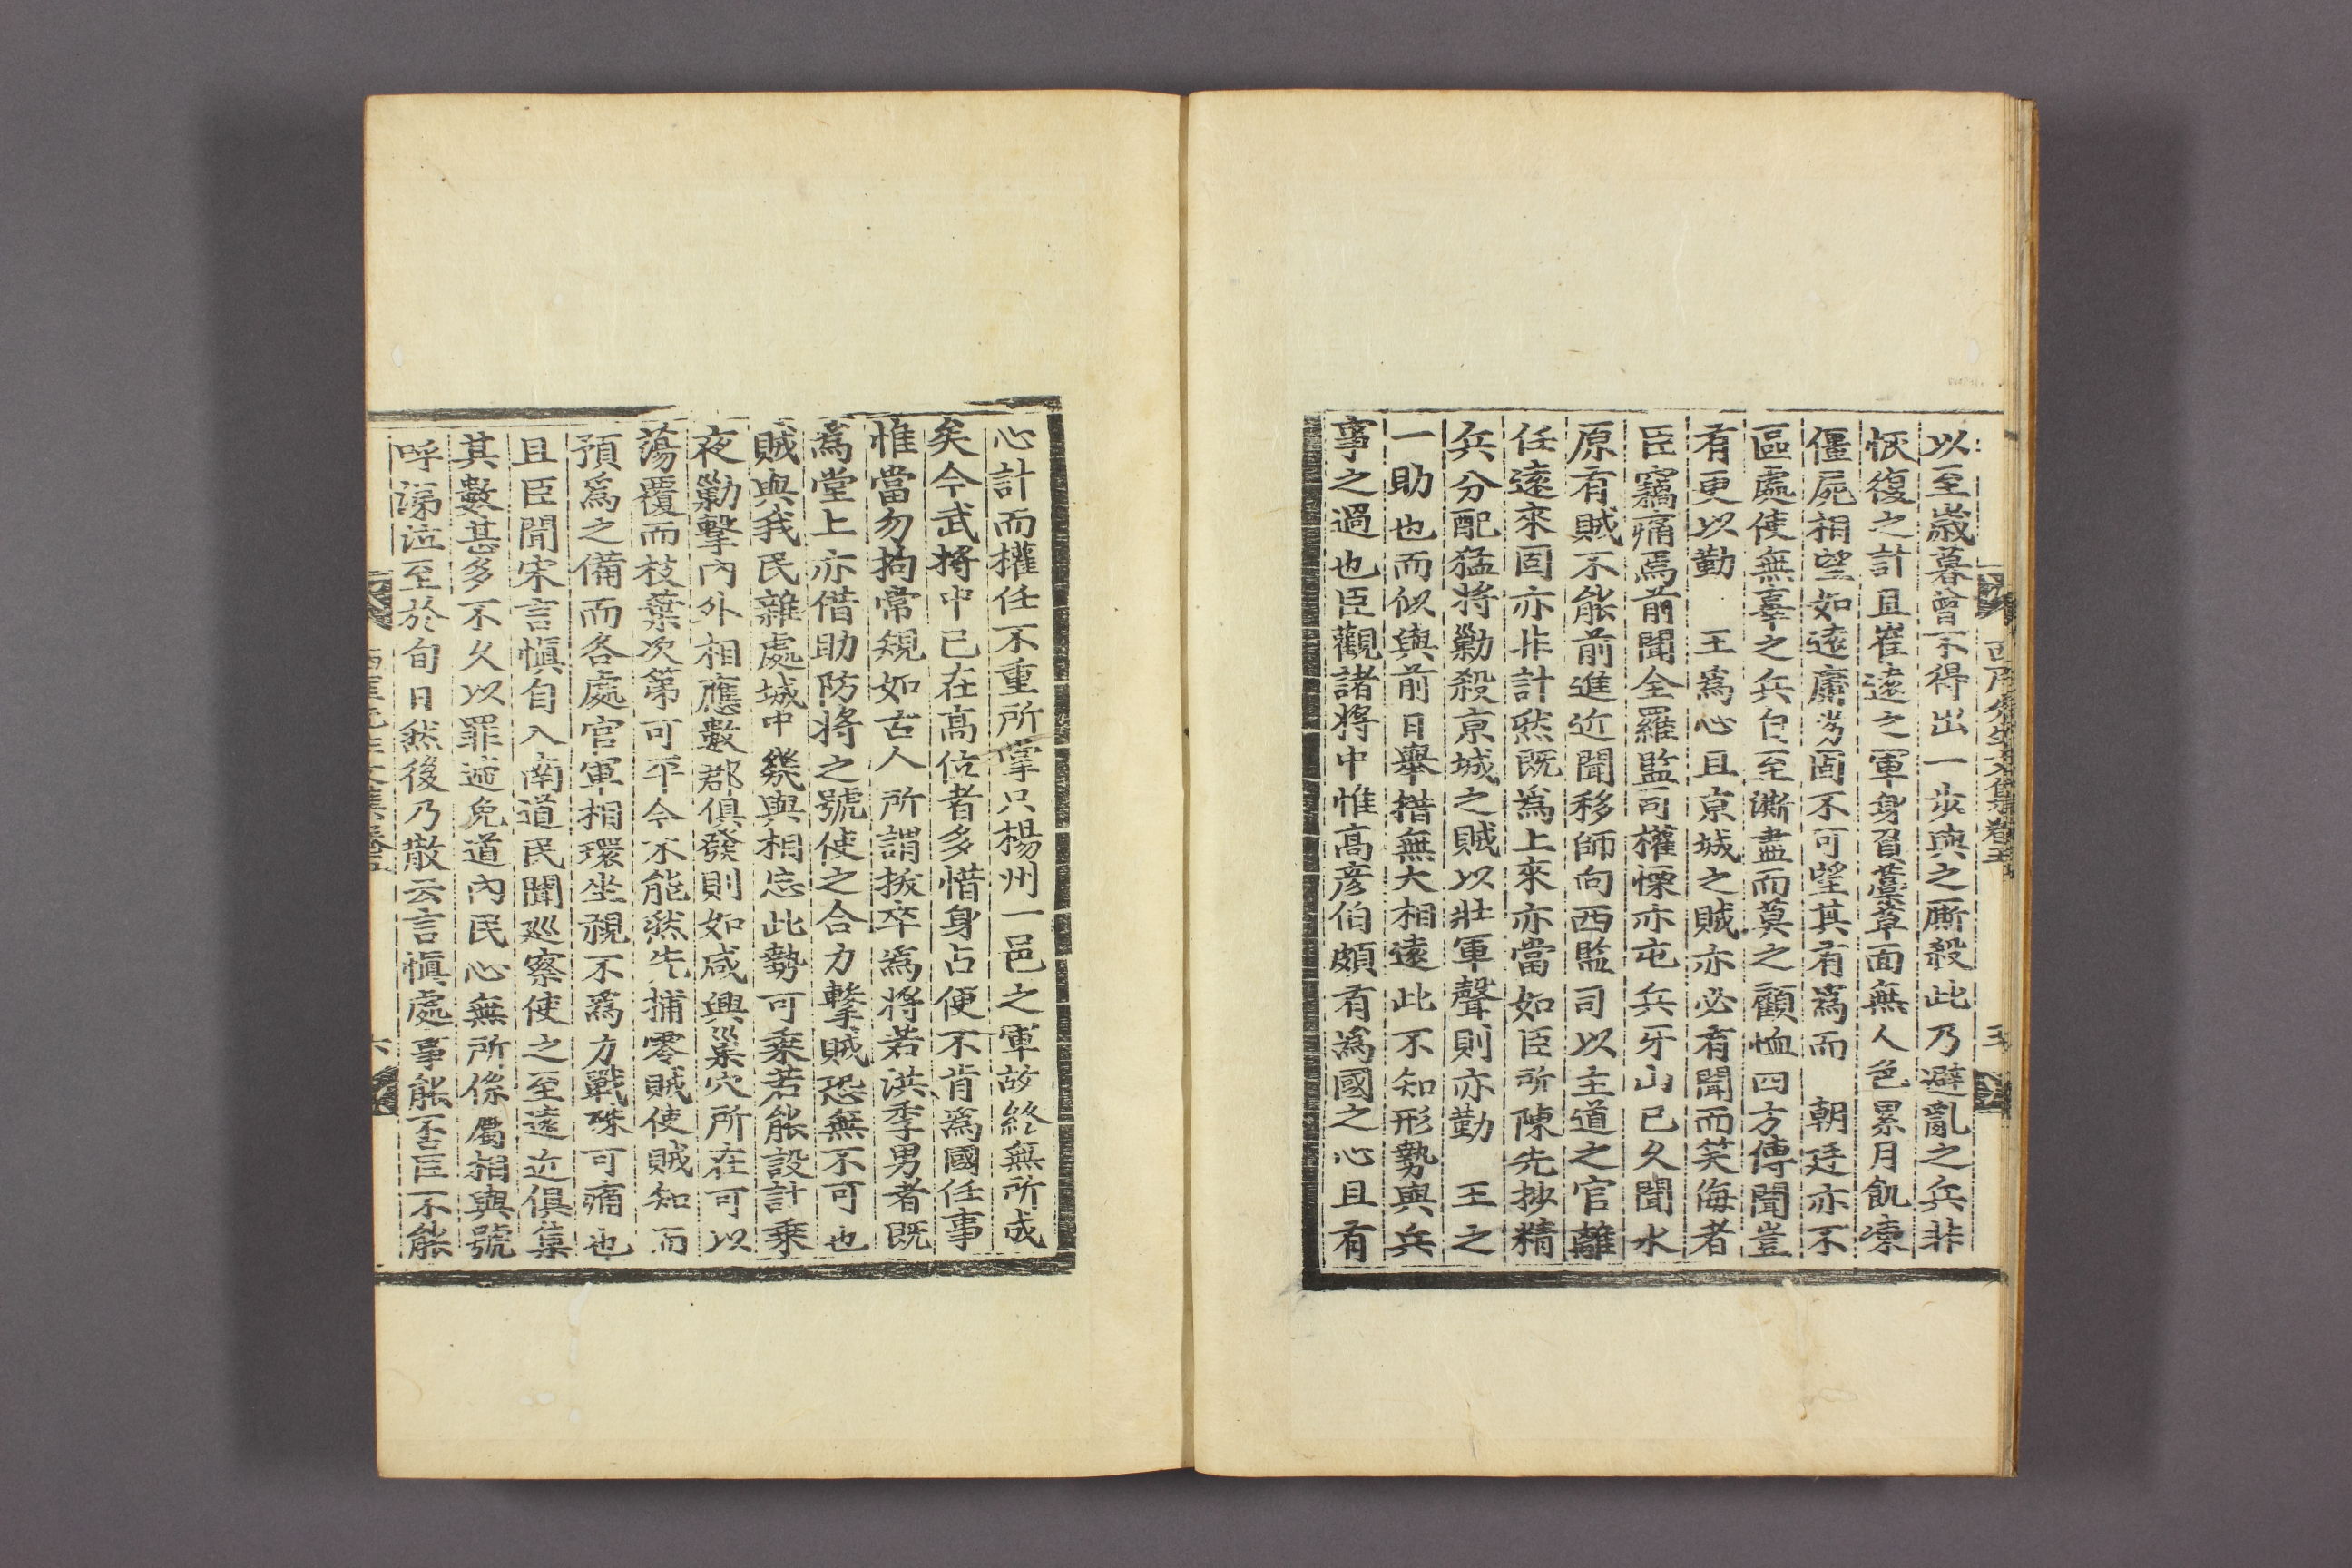 以至歲暮曾不得出一步與之廝殺此乃避亂之兵非
恢復之計且崔遠之軍身負藁草面無人色累月飢凍
僵屍相望如遠庸劣固不可望其有爲而　朝廷亦不
區處使無辜之兵自至澌盡而莫之顧恤四方傳聞豈
有更以勤　王爲心且京城之賊亦必有聞而笑侮者
臣竊痛焉前聞全羅監司權慄亦屯兵牙山已久聞水
原有賊不能前進近聞移師向西監司以主道之官離
任遠來固亦非計然既爲上來亦當如臣所陳先抄精
兵分配猛將勦殺京城之賊以壯軍聲則亦勤　王之
一助也而似與前日舉措無大相遠此不知形勢與兵
事之過也臣觀諸將中惟高彦伯頗有爲國之心且有
心計而權任不重所掌只楊州一邑之軍故終無所成
矣今武將中已在高位者多惜身占便不肯爲國任事
惟當勿拘常規如古人所謂拔卒爲將若洪季男者既
爲堂上亦借助防將之號使之合力擊賊恐無不可也
賊與我民雜處城中幾與相忘此勢可乘若能設計乘
夜勦擊內外相應數郡俱發則如咸興巢穴所在可以
蕩覆而枝葉次第可平今不能然先捕零賊使賊知而
預爲之備而各處官軍相環坐視不爲方戰殊可痛也
且臣聞宋言愼自入南道民聞巡察使之至遠近俱集
其數甚多不久以罪遞免道內民心無所係屬相與號
呼涕泣至於旬日然後乃散云言愼處事能否臣不能
西厓先生文集卷五
五
六